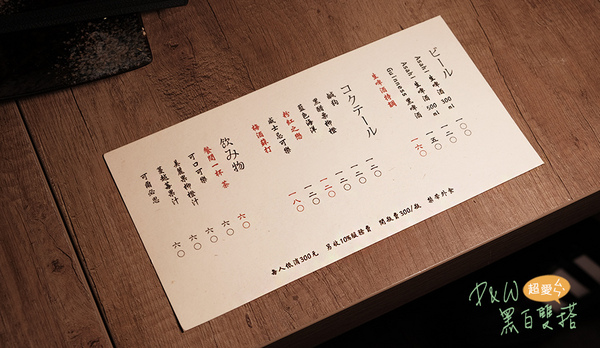 ビール
Asahi 生啤酒 300ml 一〇〇
Asahi 生啤酒 500ml 一二〇
Guinness 黑啤酒
生啤酒特調 一六〇
コクテール
鹹狗 一二〇
黑醋栗柳橙 一二〇
藍色海洋 一二〇
粉紅之戀 一二〇
威士忌可樂 一二〇
梅酒蘇打 一八〇
飲み物
一杯茶 六〇
可口可樂 六〇
美粒果柳橙汁 六〇
蔓越莓果汁 六〇
可爾必思 六〇
每人低消300元 另收10%服務費 開瓶費300/瓶 禁帶外食
P&W 超愛ㄘ
黑白雙搭